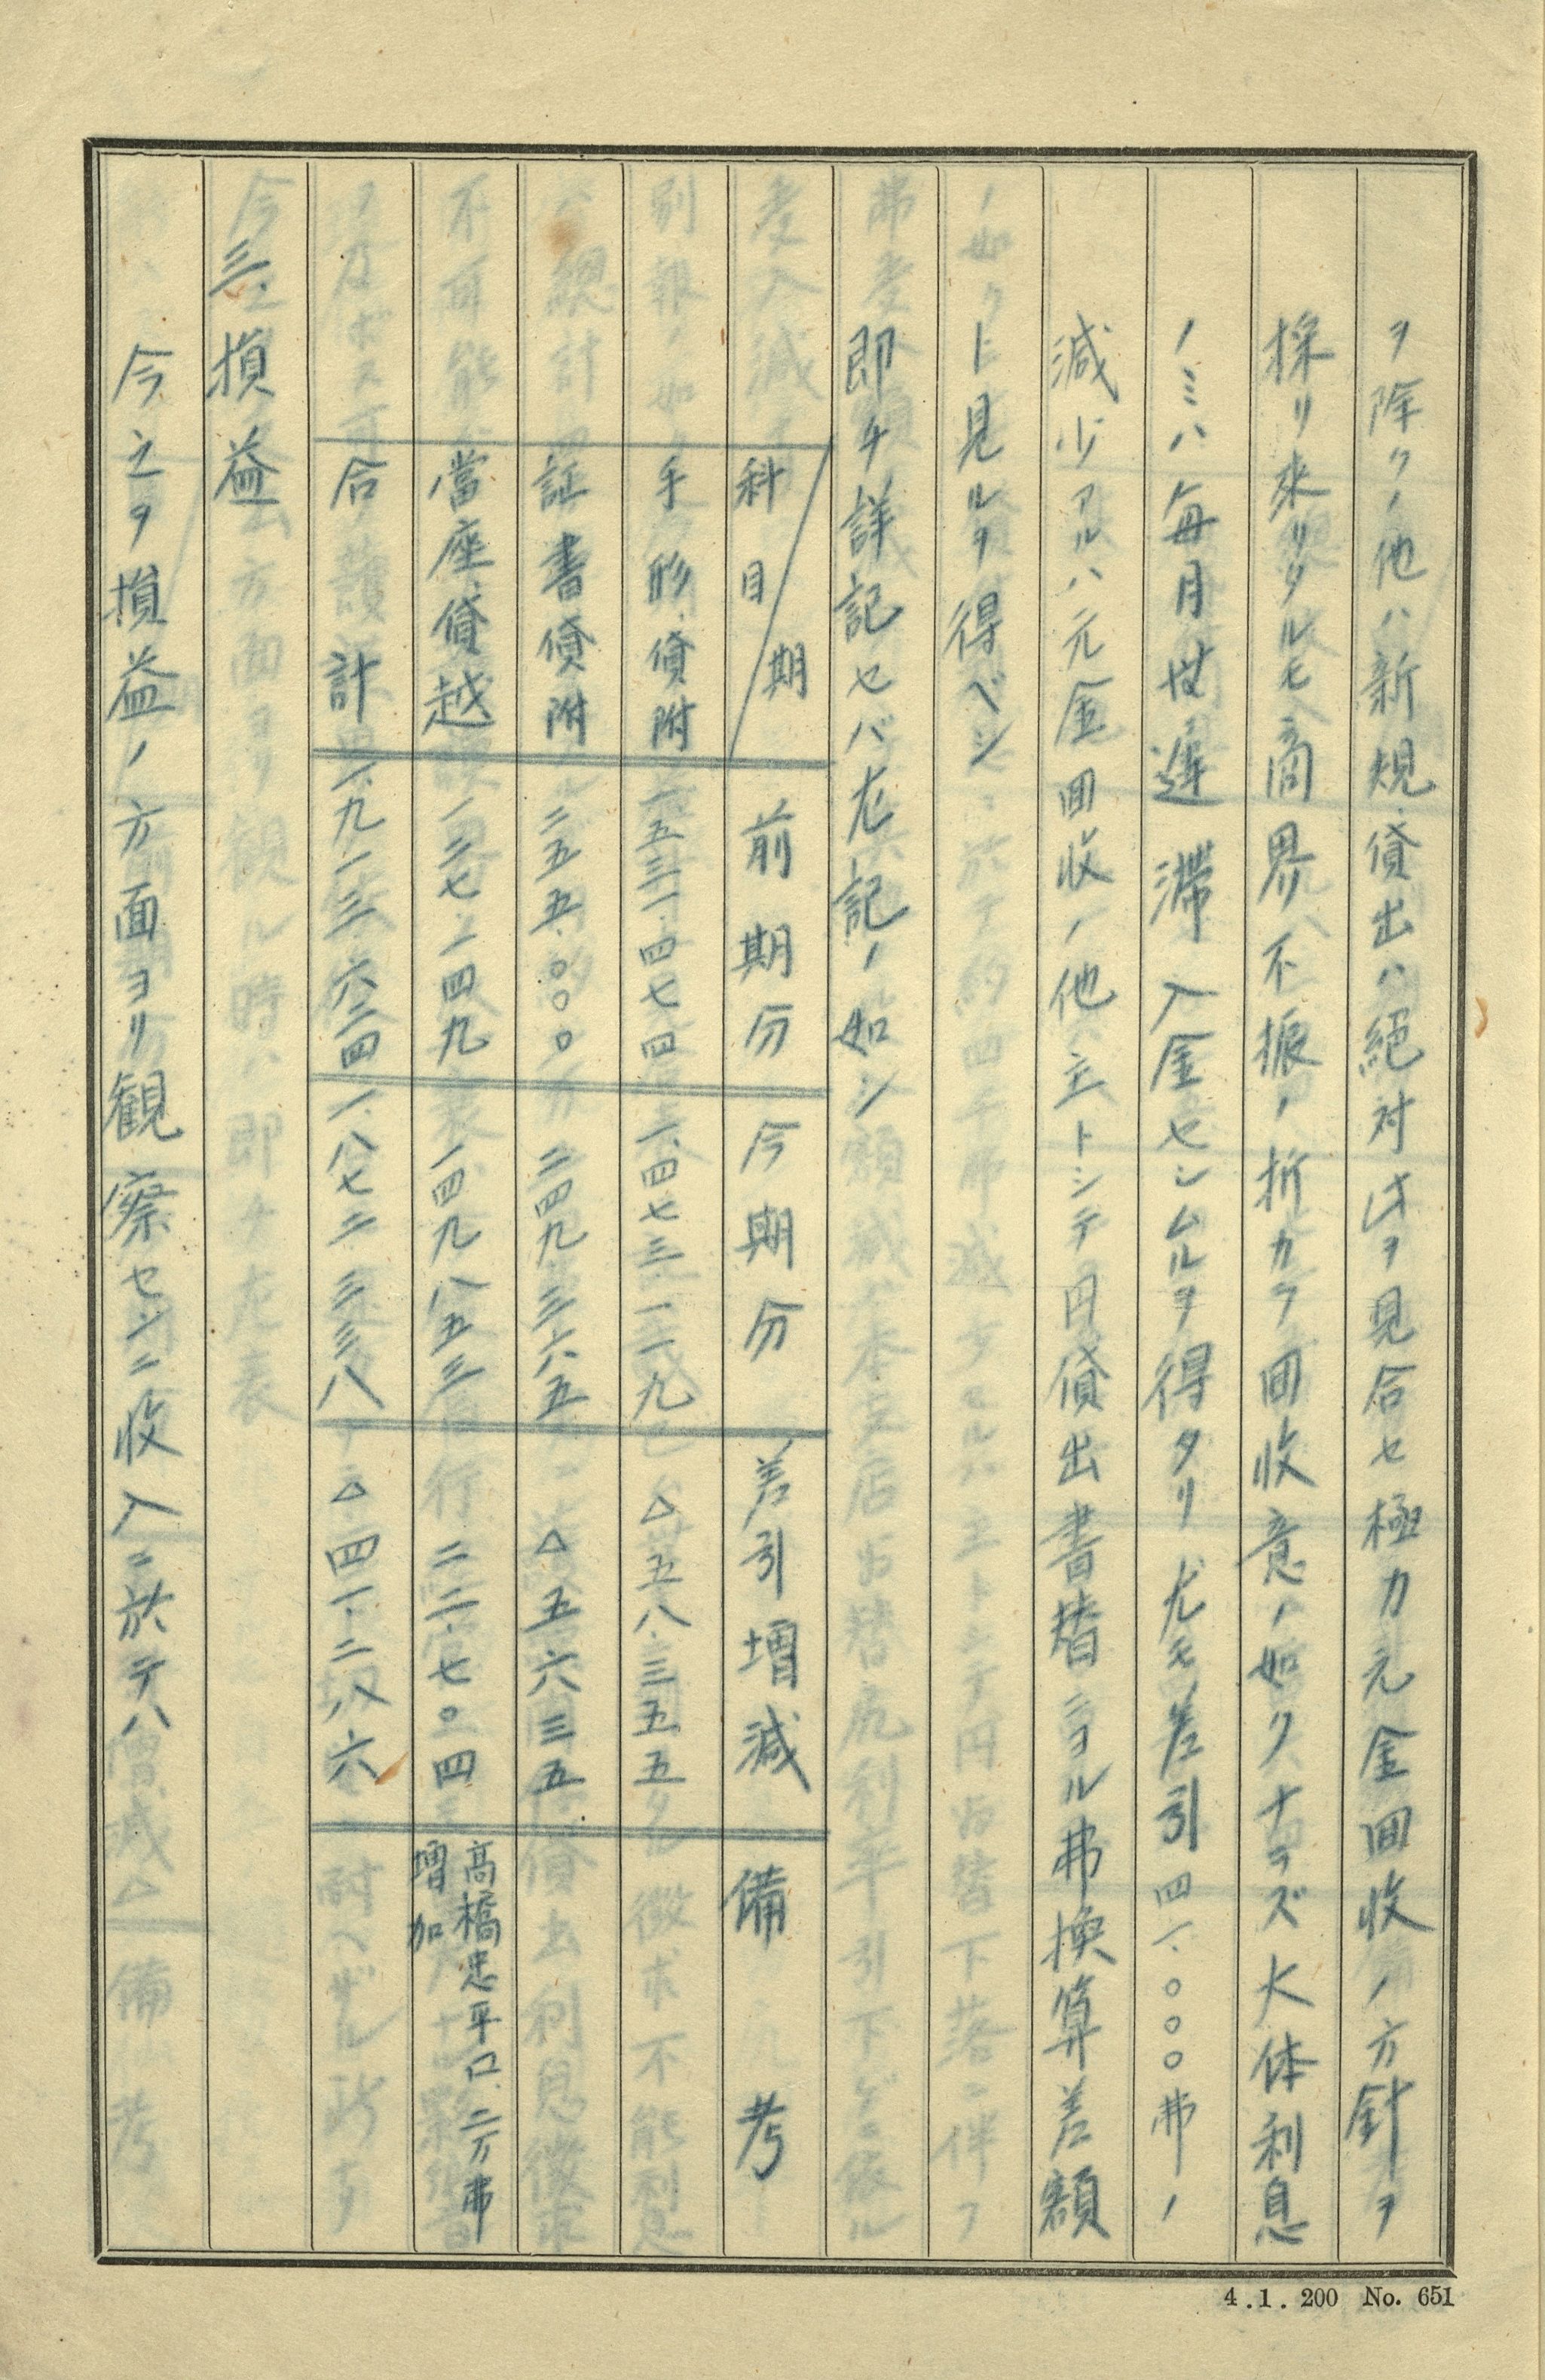 ヲ除クノ他ハ新規貸出ハ絶対此ヲ見合セ極力元金回收ノ方針ヲ
採リ來リタルモ商界不振ノ折カラ回收意ノ如クナラズ大体利息
ノミハ毎月世遅滞入金セシムルヲ得タリ尤モ差引四一、〇〇〇弗ノ
減少アルハ元金回收ノ他主トシテ円貸出書替ニヨル弗換算差額
ト見ルヲ得ベシ
即チ詳記セバ左記ノ如シ
科目/期 前期分 今期分 差引増減 備考
手形貸附 一、五三一、四七四 一、四七三、一一九 △五八、三五五
証書貸附 二五五、〇〇〇 二四九、三六五 △五六三五
當座貸越 一二七、一四九 一四九、八五三 二二、七〇四 高橋忠平口二万弗増加
合計 一、九一三、六二四 一、八七二、三三八 △四一、二八六
三、損益
今之ヲ損益ノ方面ヨリ観察センニ收入ニ於テハ
4.1.200 No. 651